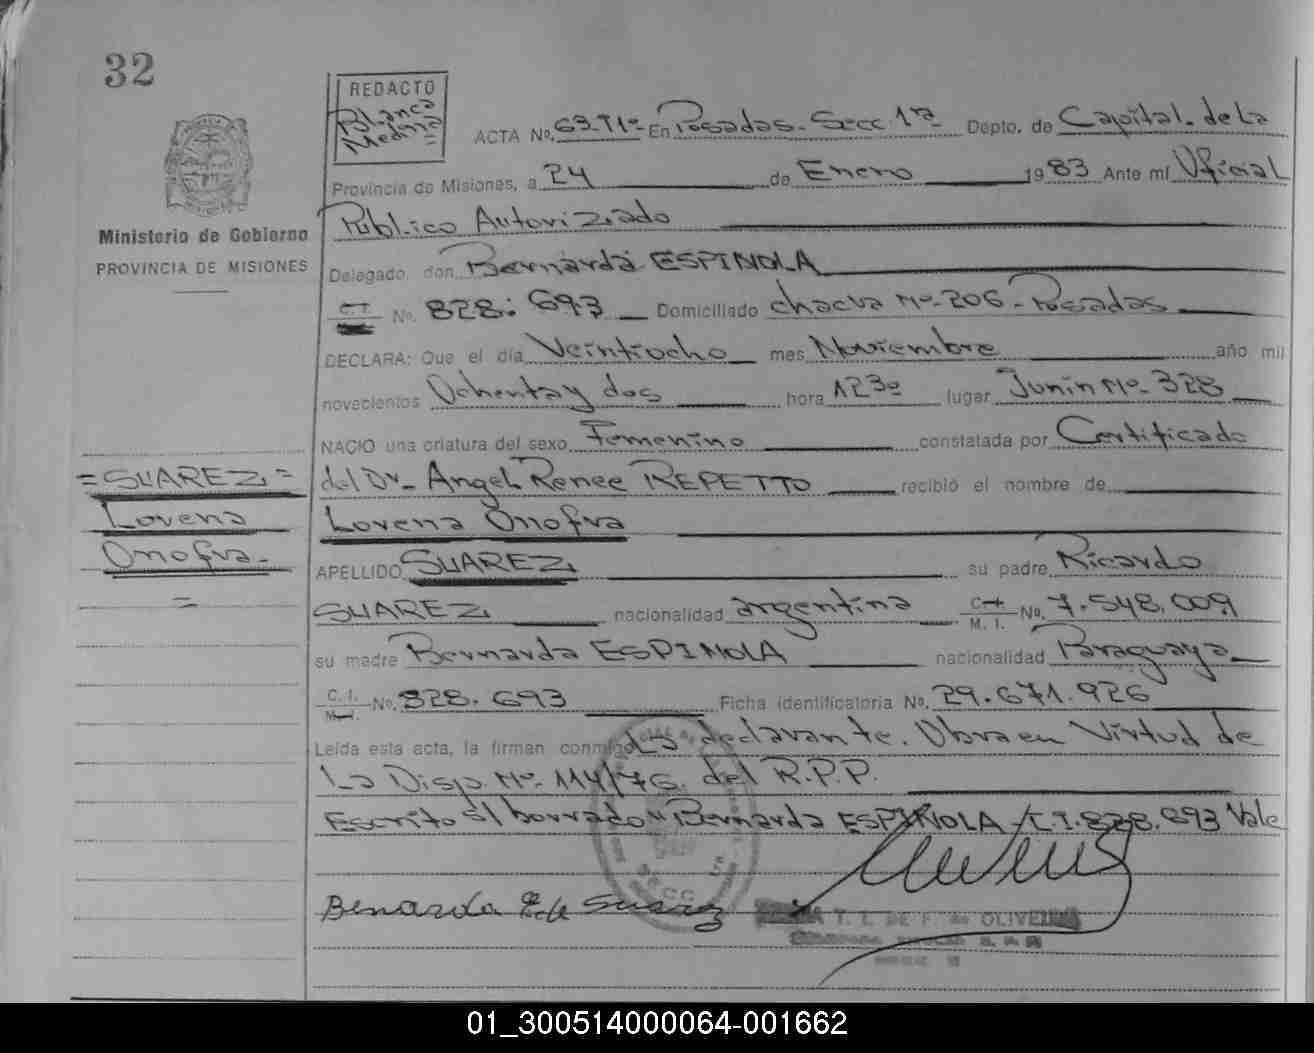 32
REDACTO
Blanca
Medina
ACTA No. 63-T1º En Posadas. Secc 1ra Depto. de Capital. de La
Provincia de Misiones, a 24 de Enero 1983 Ante mí Oficial
Público Autorizado
Ministerio de Gobierno
PROVINCIA DE MISIONES
Delegado, don Bernarda ESPINOLA
C.I. No. 828.693 Domiciliado chacra Nº-206-Posadas
DECLARA: Que el día Veintiocho mes Noviembre año mil
novecientos Ochenta y dos hora 1230 lugar Junín Nº 328
NACIO una criatura del sexo Femenino constatada por Certificado
=SUAREZ=
del Dr. Angel Renee REPETTO recibió el nombre de
Lorena
Lorena Onofra
Onofra.-
APELLIDO SUAREZ su padre Ricardo
=
SUAREZ nacionalidad argentina C.I. M. I. No. 7.548.009
su madre Bernarda ESPINOLA nacionalidad Paraguaya
C. I. M.I. No. 828.693 Ficha identificatoria No. 29.671.926
Leída esta acta, la firman conmigo La declarante. Obra en Virtud de
La Disp. Nº. 114/76. del R.P.P.
Escrito s/ borrado "Bernarda ESPINOLA - C.I. 828.693 Vale
SECC. 1ra
Benarda E de Suarez
T. I. DE F. de OLIVEIRA
01_300514000064-001662